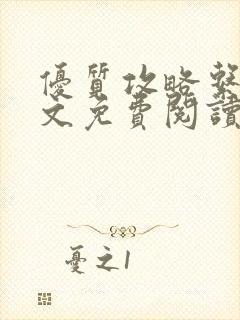 優質攻略繫
文免費閱讀
憂之1